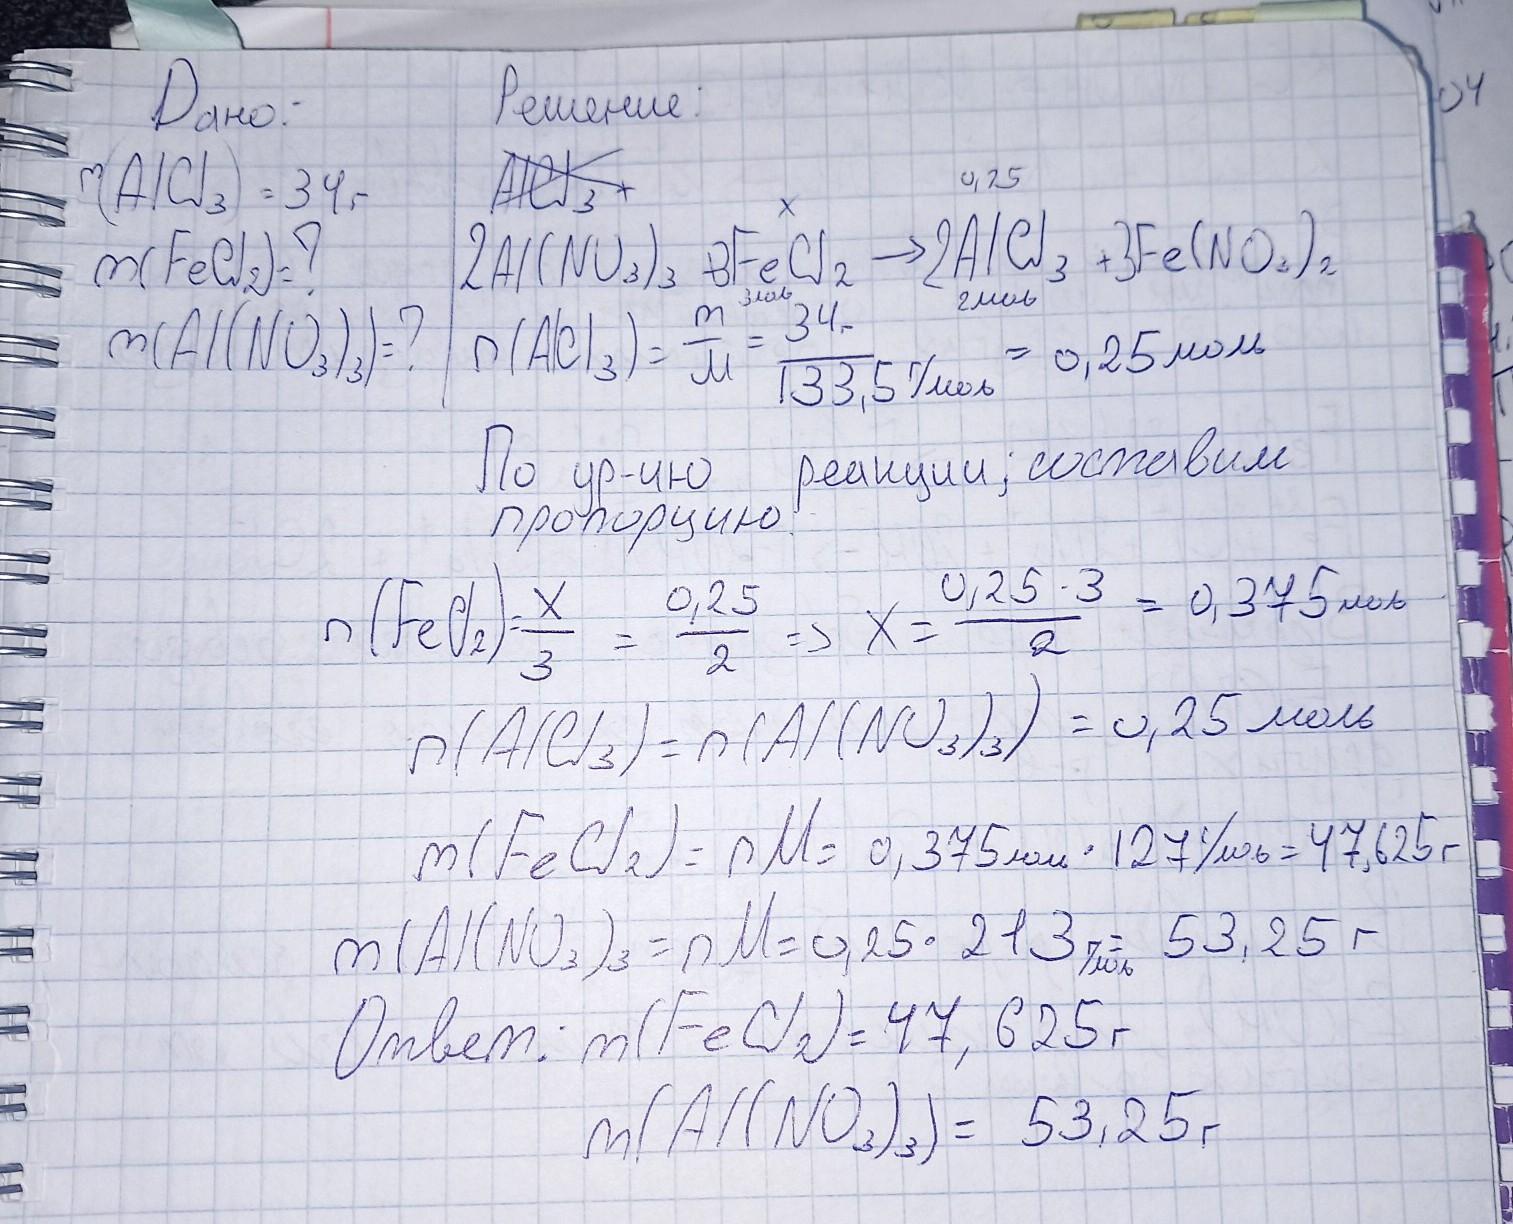 Дано:
Решение:
m(AlCl3) = 34г
AlCl3 +
m(FeCl2)=?
x
0,25
2Al(NO3)3 + 3FeCl2 → 2AlCl3 + 3Fe(NO3)2
3моль
2моль
m(Al(NO3)3)=?
n(AlCl3) = m/M = 34г/133,5г/моль = 0,25 моль
По ур-ию реакции; составим
пропорцию:
n(FeCl2)= x/3 = 0,25/2 => x = 0,25·3/2 = 0,375 моль
n(AlCl3) = n(Al(NO3)3) = 0,25 моль
m(FeCl2) = nM = 0,375моль · 127г/моль = 47,625 г
m(Al(NO3)3 = nM = 0,25 · 213 г/моль = 53,25 г
Ответ: m(FeCl2) = 47,625г
m(Al(NO3)3) = 53,25г
04